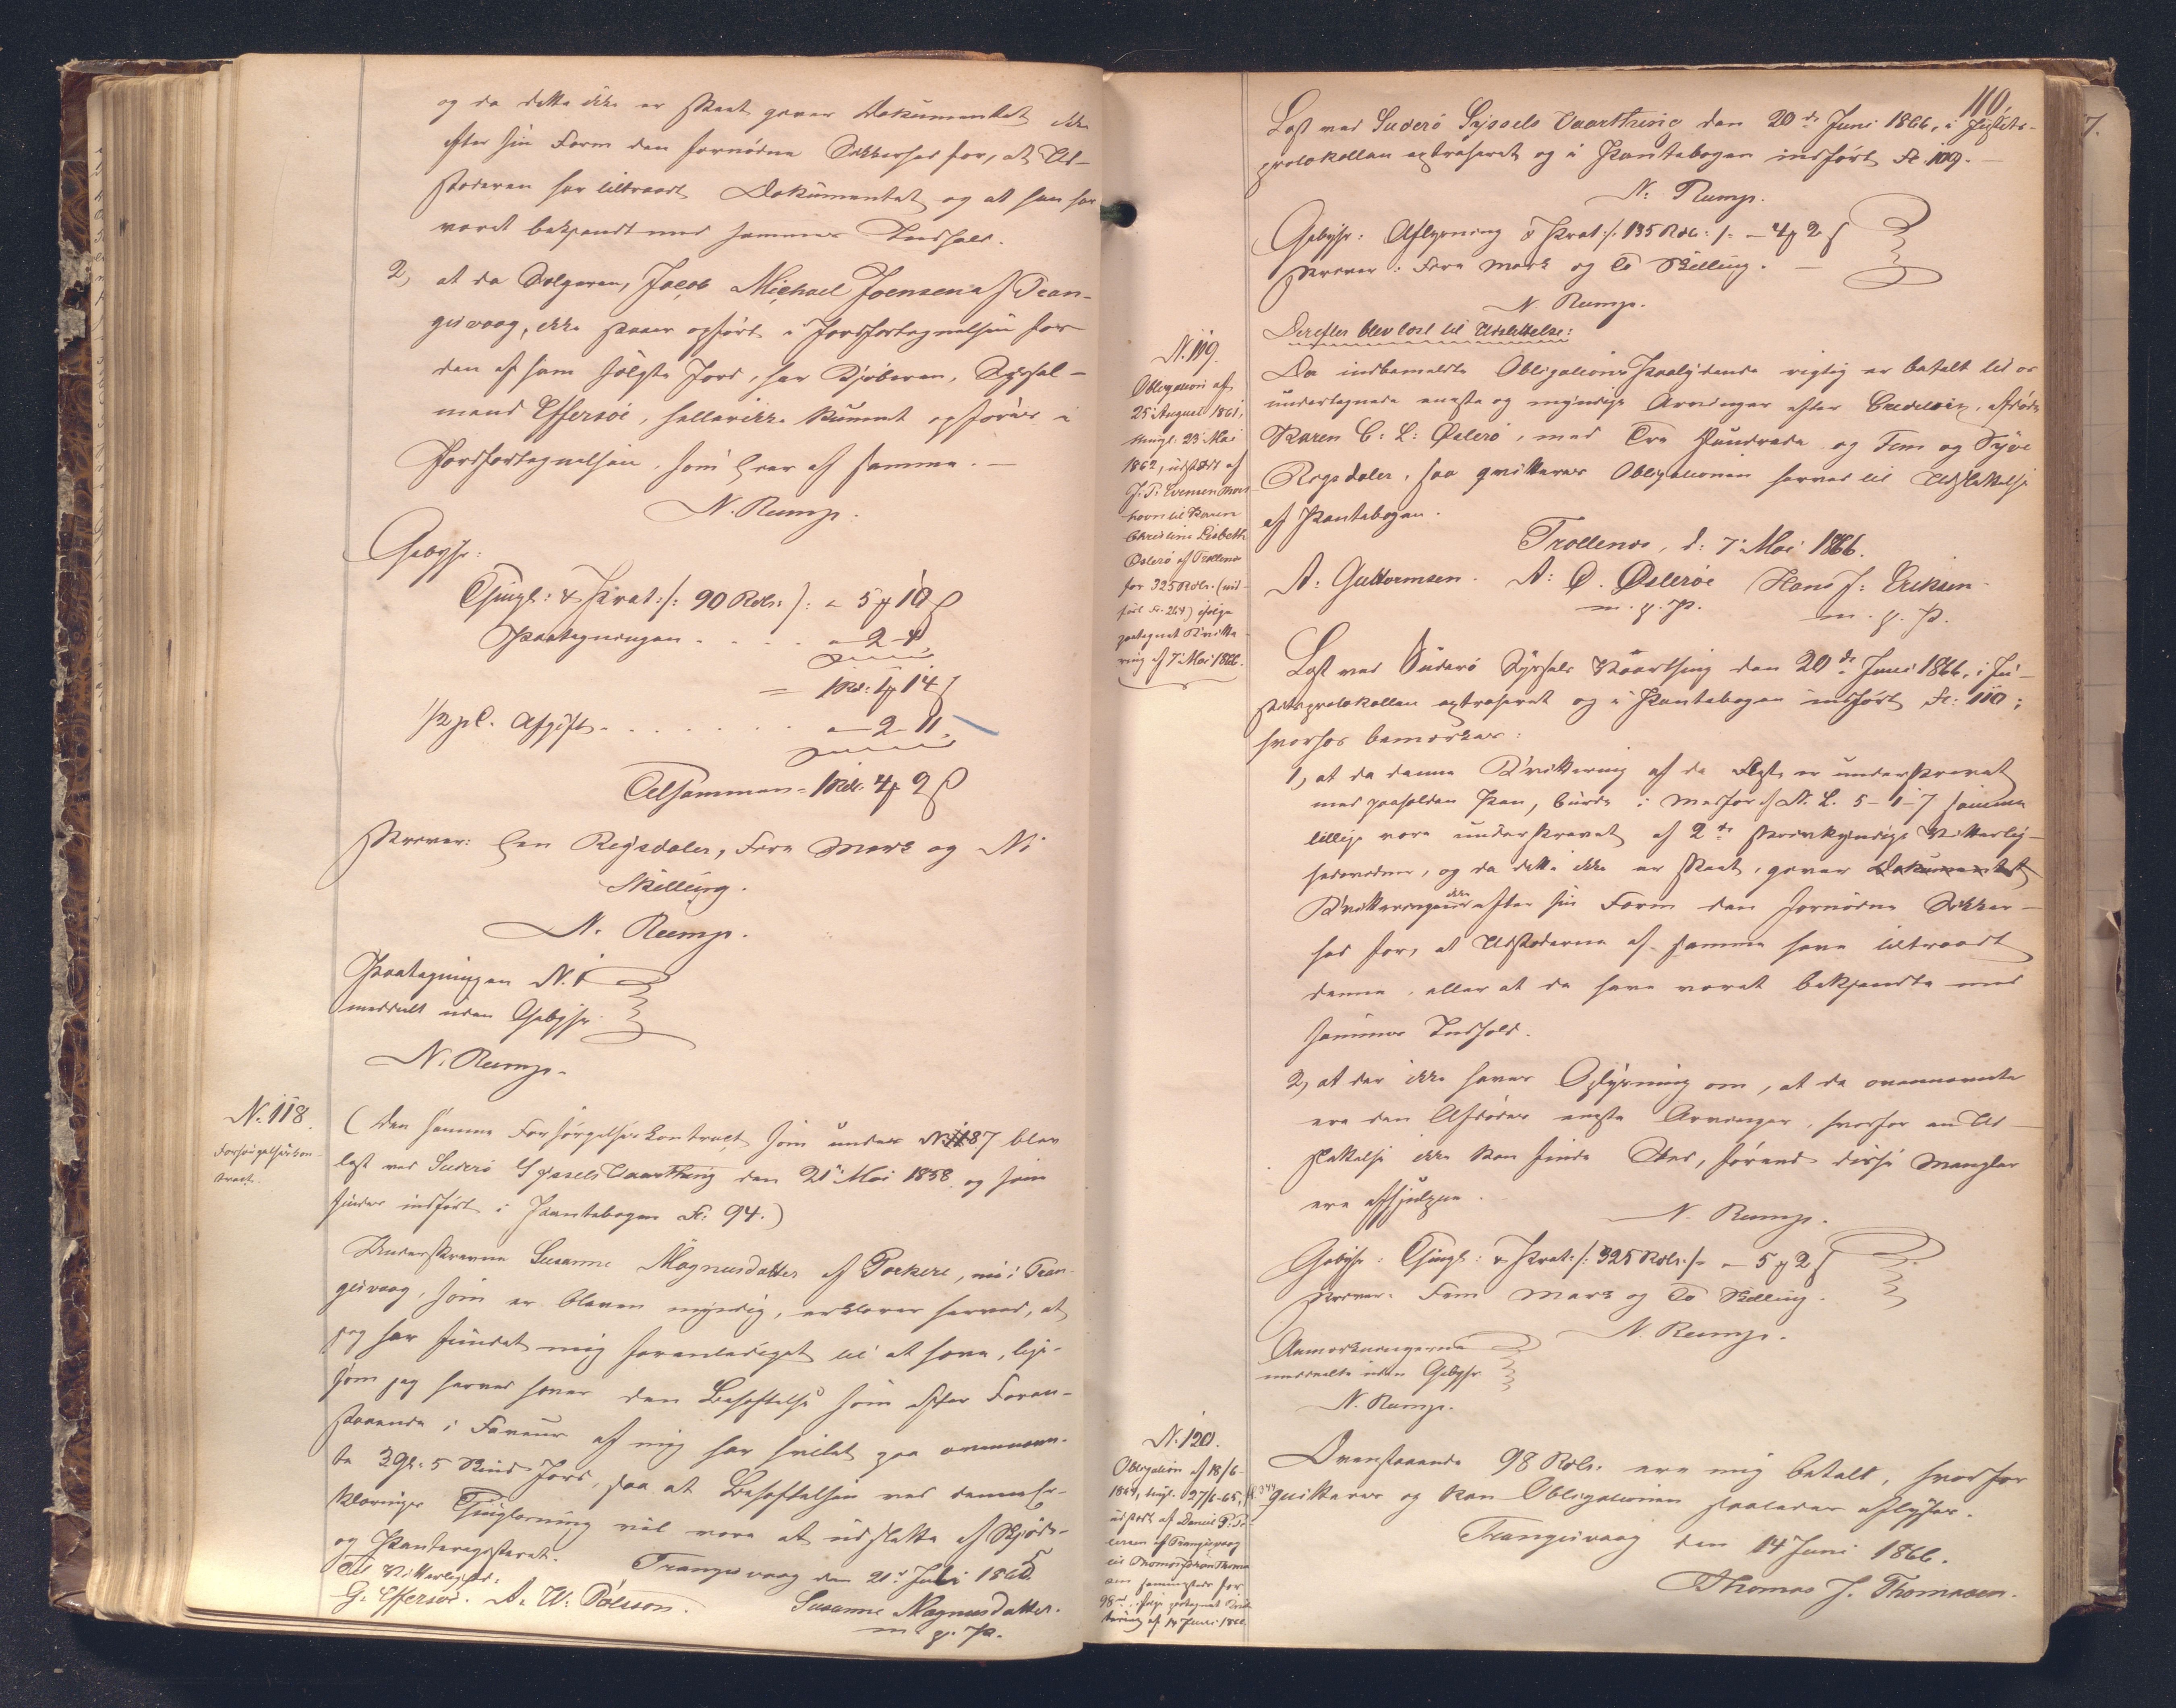 og da dette ikke er skeet giver Dokumentet ikke
efter sin Form den fornødne Sikkerhed for, at Ud-
stederen har tiltraadt Dokumentet og at han har
været bekjendt med sammes Indhold.
2, at da Sælgeren, Jacob Michael Joensen af Tran-
gisvaag, ikke staaer opført i Jordfortegnelsen for
den af ham solgte Jord, har Kjøberen, Syssel-
mand Effersøe, hellerikke kunnet opføres i
Jordfortegnelsen, som Eier af samme. —
N. Rump.
Gebyhr:
Thingl: & Skrat: /: 90 Rdl: :/ = 5 ₰ 10 ß
Paategningen . . . . = 2 - 4
= 1 Rd: 1 ₰ 14 ß
1/2 pC. Afgift . . . . . . = 2 - 11.
Tilsammen = 1 Rdl: 4 ₰ 9 ß
skriver: Een Rigsdaler, Fire Mark og Ni
Skilling.
N. Rump.
Paategningen N. 1
meddeelt uden Gebyhr.
N. Rump.
N. 118.
Forsørgelseskon-
tract.
(Den samme Forsørgelses Kontract, som under N. 87 blev
læst ved Suderø Syssels Vaarthing den 21de Mai 1858 og som
findes indført i Pantebogen Fl: 94.)
Underskrevne Susanne Magnusdatter af Porkere, nu i Tran-
gisvaag, som er bleven myndig, erklærer herved, at
jeg har fundet mig foranlediget til at hæve, lige-
som jeg herved hæver den Behæftelse som efter Foran-
staaende i Faveur af mig har hvilet paa ovennævn-
te 3 Gl: 5 Skind Jord, saa at Behæftelsen ved denne Er-
klærings Thinglæsning vil være at udslette af Skjøde-
og Panteregisteret.
Trangisvaag den 21de Juli 1865.
Til Vitterlighed:
G. Effersøe. A. W. Polsson.
Susanne Magnusdatter.
m. p. P.
110.
Læst ved Suderø Syssels Vaarthing den 20de Juni 1866, i Justits-
protokollen extraheret og i Pantebogen indført Fl. 109. —
N. Rump.
Gebyhr: Aflysning & Skrat: /: 135 Rdl: :/ = 4 ₰ 2 ß
skriver: Fire Mark og To Skilling. —
N. Rump.
Derefter blev læst til Udslettelse:
N. 119.
Obligation af
25 August 1861,
thingl. 23 Mai
1862, udstedt af
J. P. Evensen Thors-
havn til Karen
Christine Lisbeth
Østerø af Trollenæs
for 325 Rdlr. (ind-
ført Fl. 264) ifølge
paategnet Kvitte-
ring af 7 Mai 1866.
Da indbemeldte Obligations Paalydende rigtig er betalt til os
undertegnede eneste og myndige Arvinger efter Creditrix, afdøde
Karen C: L: Østerø, med Tre Hundrede og Fem og Tyve
Rigsdaler, saa qvitteres Obligationen herved til Udslettelse
af Pantebogen.
Trollenæs, d: 7 Mai 1866.
A: Guttormsen. A: D. Østerøe Hans J: Eriksen.
m. p. P. m. p. P.
Læst ved Suderø Syssels Vaarthing den 20de Juni 1866, i Ju-
stitsprotokollen extraheret og i Pantebogen indført Fl: 110;
hvorhos bemærkes:
1, at da denne Kvittering af de fleste er underskrevet
med paaholden Pen, burde i Medfør af N. L. 5-1-7 samme
tillige være underskrevet af 2de skrivkyndige Vitterlig-
hedsvidner, og da dette ikke er skeet, giver Dokumentet
Kvitteringen ikke efter sin Form den fornødne Sikker-
hed for, at Udstederne af samme have tiltraadt
denne, eller at de have været bekjendte med
sammes Indhold.
2, at der ikke haves Oplysning om, at de ovennævnte
ere den Afdødes eneste Arvinger, hvorfor en Ud-
slettelse ikke kan finde Sted, førend disse Mangler
ere afhjulpne.
N. Rump.
Gebyhr: Thingl: & Skrat: /: 325 Rdlr: :/ = 5 ₰ 2 ß
skriver: Fem Mark og To Skilling.
N. Rump.
Anmærkningerne
meddeelte uden Gebyhr.
N. Rump.
N. 120.
Obligation af 18/6
udstedt af Daniel P. Pe-
tersen af Trangisvaag
til Thomas Johan Thoma-
sen sammesteds for
98 rd. ifølge paategnet Kvit-
tering af 14 Juni 1866.
Ovenstaaende 98 Rdlr. ere mig betalt, hvorfor
qvitteres og kan Obligationen saaledes aflyses.
Trangisvaag den 14 Juni 1866.
Thomas J. Thomasen.